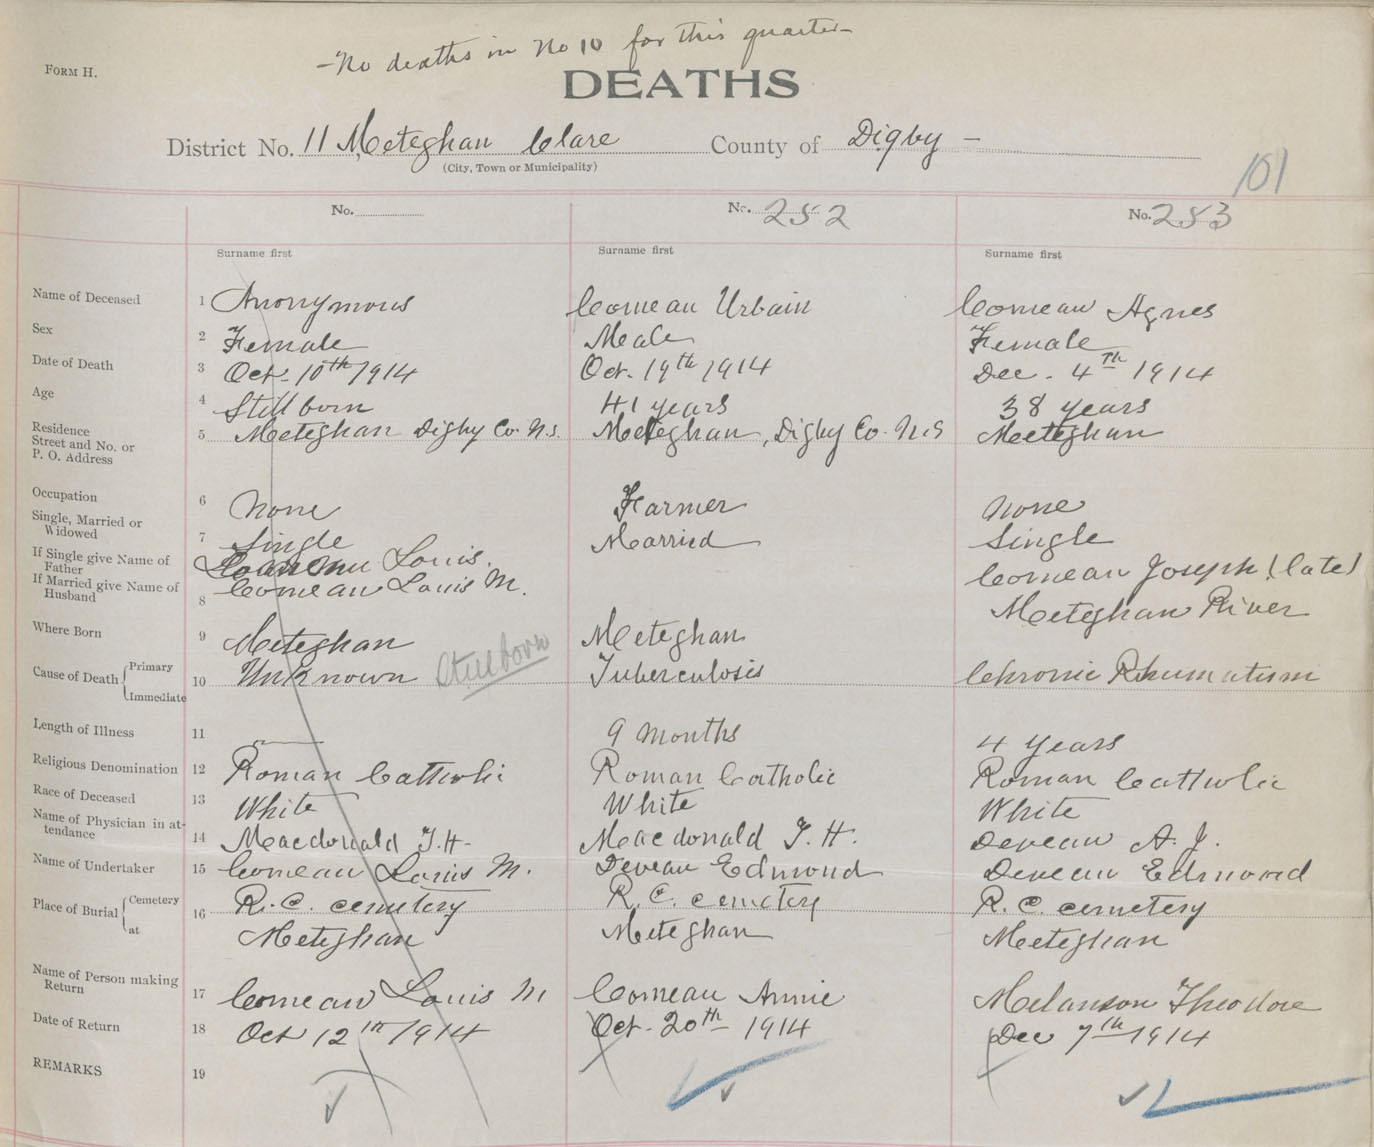 -No deaths in No 10 for this quarter-
FORM H.
DEATHS
District No. 11 Meteghan Clare County of Digby -
(City, Town or Municipality)
101
No. No. 252 No. 253
Surname first Surname first Surname first
Name of Deceased 1 Anonymous Comeau Urbain Comeau Agnes
Sex 2 Female Male Female
Date of Death 3 Oct. 10th 1914 Oct. 19th 1914 Dec. 4th 1914
Age 4 Still born 41 years 38 years
Residence
Street and No. or
P. O. Address 5 Meteghan Digby Co. N.S. Meteghan, Digby Co. N.S Meeteghan
Occupation 6 None Farmer None
Single, Married or
Widowed 7 Single Married Single
If Single give Name of
Father Louis. Comeau Joseph (late)
If Married give Name of
Husband 8 Comeau Louis M.
Where Born 9 Meteghan Meteghan Meteghan River
Cause of Death { Primary
Immediate 10 Unknown Stillborn Tuberculosis Chronic Rhumatism
Length of Illness 11 9 months 4 years
Religious Denomination 12 Roman Cattholic Roman Catholic Roman Cattholic
Race of Deceased 13 White White White
Name of Physician in at-
tendance 14 Macdonald T.H. Macdonald T. H. Deveau A. J.
Name of Undertaker 15 Comeau Louis M. Deveau Edmond Deveau Edmond
Place of Burial { Cemetery
at 16 R.C. cemetery R. C. cemetery R. C. cemetery
Meteghan Meteghan Meeteghan
Name of Person making
Return 17 Comeau Louis M Comeau Annie Melanson Theodore
Date of Return 18 Oct 12th 1914 Oct. 20th 1914 Dec 7th 1914
REMARKS 19